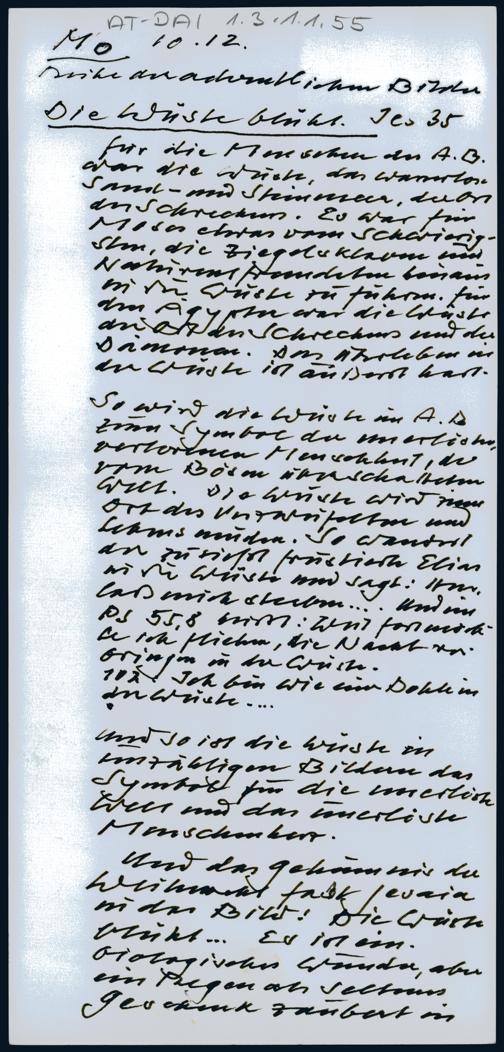 AT-DAI 1.3.1.1.55
Mo 10.12.
Reihe der adventlichen Bilder
Die Wüste blüht. Jes 35
Für die Menschen des A.B.
war die Wüste, das wasserlose
Sand- und Steinmeer, der Ort
des Schreckens. Es war für
Moses etwas vom Schwierig-
sten, die Ziegelsklaven und
Naturentfremdeten hinaus
in die Wüste zu führen. Für
den Ägypter war die Wüste
der Ort des Schreckens und der
Dämonen. Das Überleben in
der Wüste ist äußerst hart.
So wird die Wüste im A.B
zum Symbol der unerlösten,
verlorenen Menschheit, der
vom Bösen überschatteten
Welt. Die Wüste wird zum
Ort der Verzweifelten und
Lebensmüden. So wandert
der zutiefst frustrierte Elias
in die Wüste und sagt: Herr,
laß mich sterben.... Und im
Ps 55,8 heißt: Weit fort möch-
te ich fliehen, die Nacht ver-
bringen in der Wüste.
102 Ich bin wie eine Dohle in
der Wüste....
Und so ist die Wüste in
unzähligen Bildern das
Symbol für die unerlöste
Welt und das unerlöste
Menschenherz.
Und das Geheimnis der
Weihnacht faßt Jesaia
in das Bild! Die Wüste
blüht... Es ist ein
biologisches Wunder, aber
ein Regen als seltenes
Geschenk zaubert in